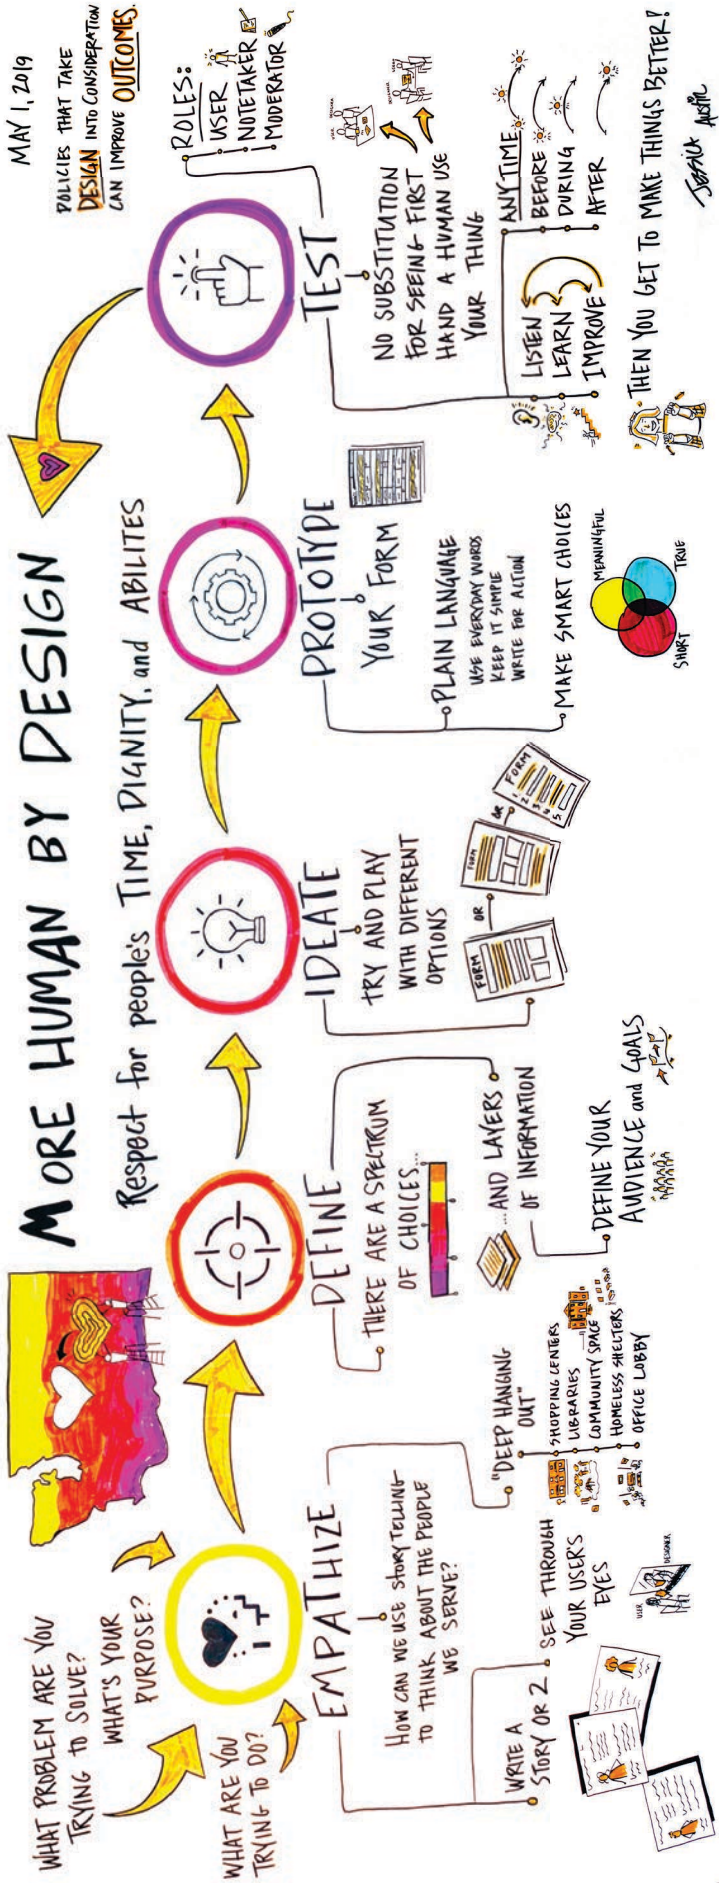 MORE HUMAN BY DESIGN
Respect for people's TIME, DIGNITY, and ABILITES
MAY 1, 2019
POLICIES THAT TAKE
DESIGN INTO CONSIDERATION
CAN IMPROVE OUTCOMES.
WHAT PROBLEM ARE YOU
TRYING TO SOLVE?
WHAT'S YOUR
PURPOSE?
WHAT ARE YOU
TRYING TO DO?
EMPATHIZE
HOW CAN WE USE STORYTELLING
TO THINK ABOUT THE PEOPLE
WE SERVE?
WRITE A
STORY OR 2
SEE THROUGH
YOUR USER'S
EYES
USER
DESIGNER
"DEEP HANGING
OUT"
SHOPPING CENTERS
LIBRARIES
COMMUNITY SPACE
HOMELESS SHELTERS
OFFICE LOBBY
DEFINE
THERE ARE A SPECTRUM
OF CHOICES...
...AND LAYERS
OF INFORMATION
DEFINE YOUR
AUDIENCE and GOALS
IDEATE
TRY AND PLAY
WITH DIFFERENT
OPTIONS
FORM
OR
FORM
OR
FORM
1.
2.
3.
4.
5.
PROTOTYPE
YOUR FORM
PLAIN LANGUAGE
USE EVERYDAY WORDS
KEEP IT SIMPLE
WRITE FOR ACTION
MAKE SMART CHOICES
MEANINGFUL
SHORT
TRUE
TEST
ROLES:
USER
NOTETAKER
MODERATOR
NO SUBSTITUTION
FOR SEEING FIRST
HAND A HUMAN USE
YOUR THING
LISTEN
LEARN
IMPROVE
ANYTIME
BEFORE
DURING
AFTER
THEN YOU GET TO MAKE THINGS BETTER!
JESSICA AUSTIN